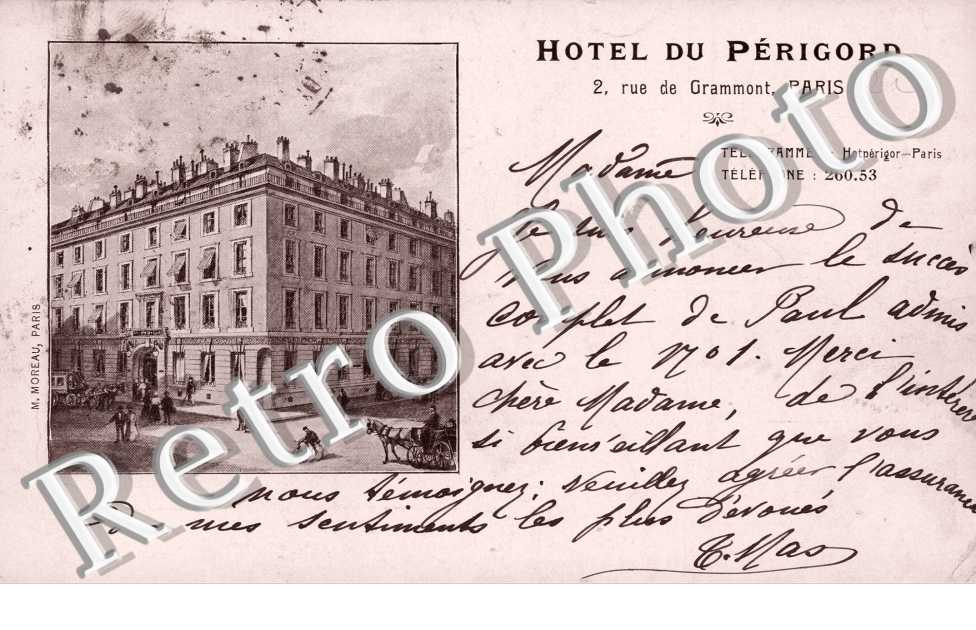 HOTEL DU PÉRIGORD
2, rue de Grammont, PARIS
TÉLÉGRAMMES : Hotpérigor-Paris
TÉLÉPHONE : 260.53
M. MOREAU, PARIS
Madame
Je suis heureuse de
vous annoncer le succès
complet de Paul admis
avec le N° 1. Merci
chère Madame, de l'intérêt
si bienveillant que vous
nous témoignez; veuillez agréer l'assurance
De mes sentiments les plus dévoués
Mas
Retro Photo